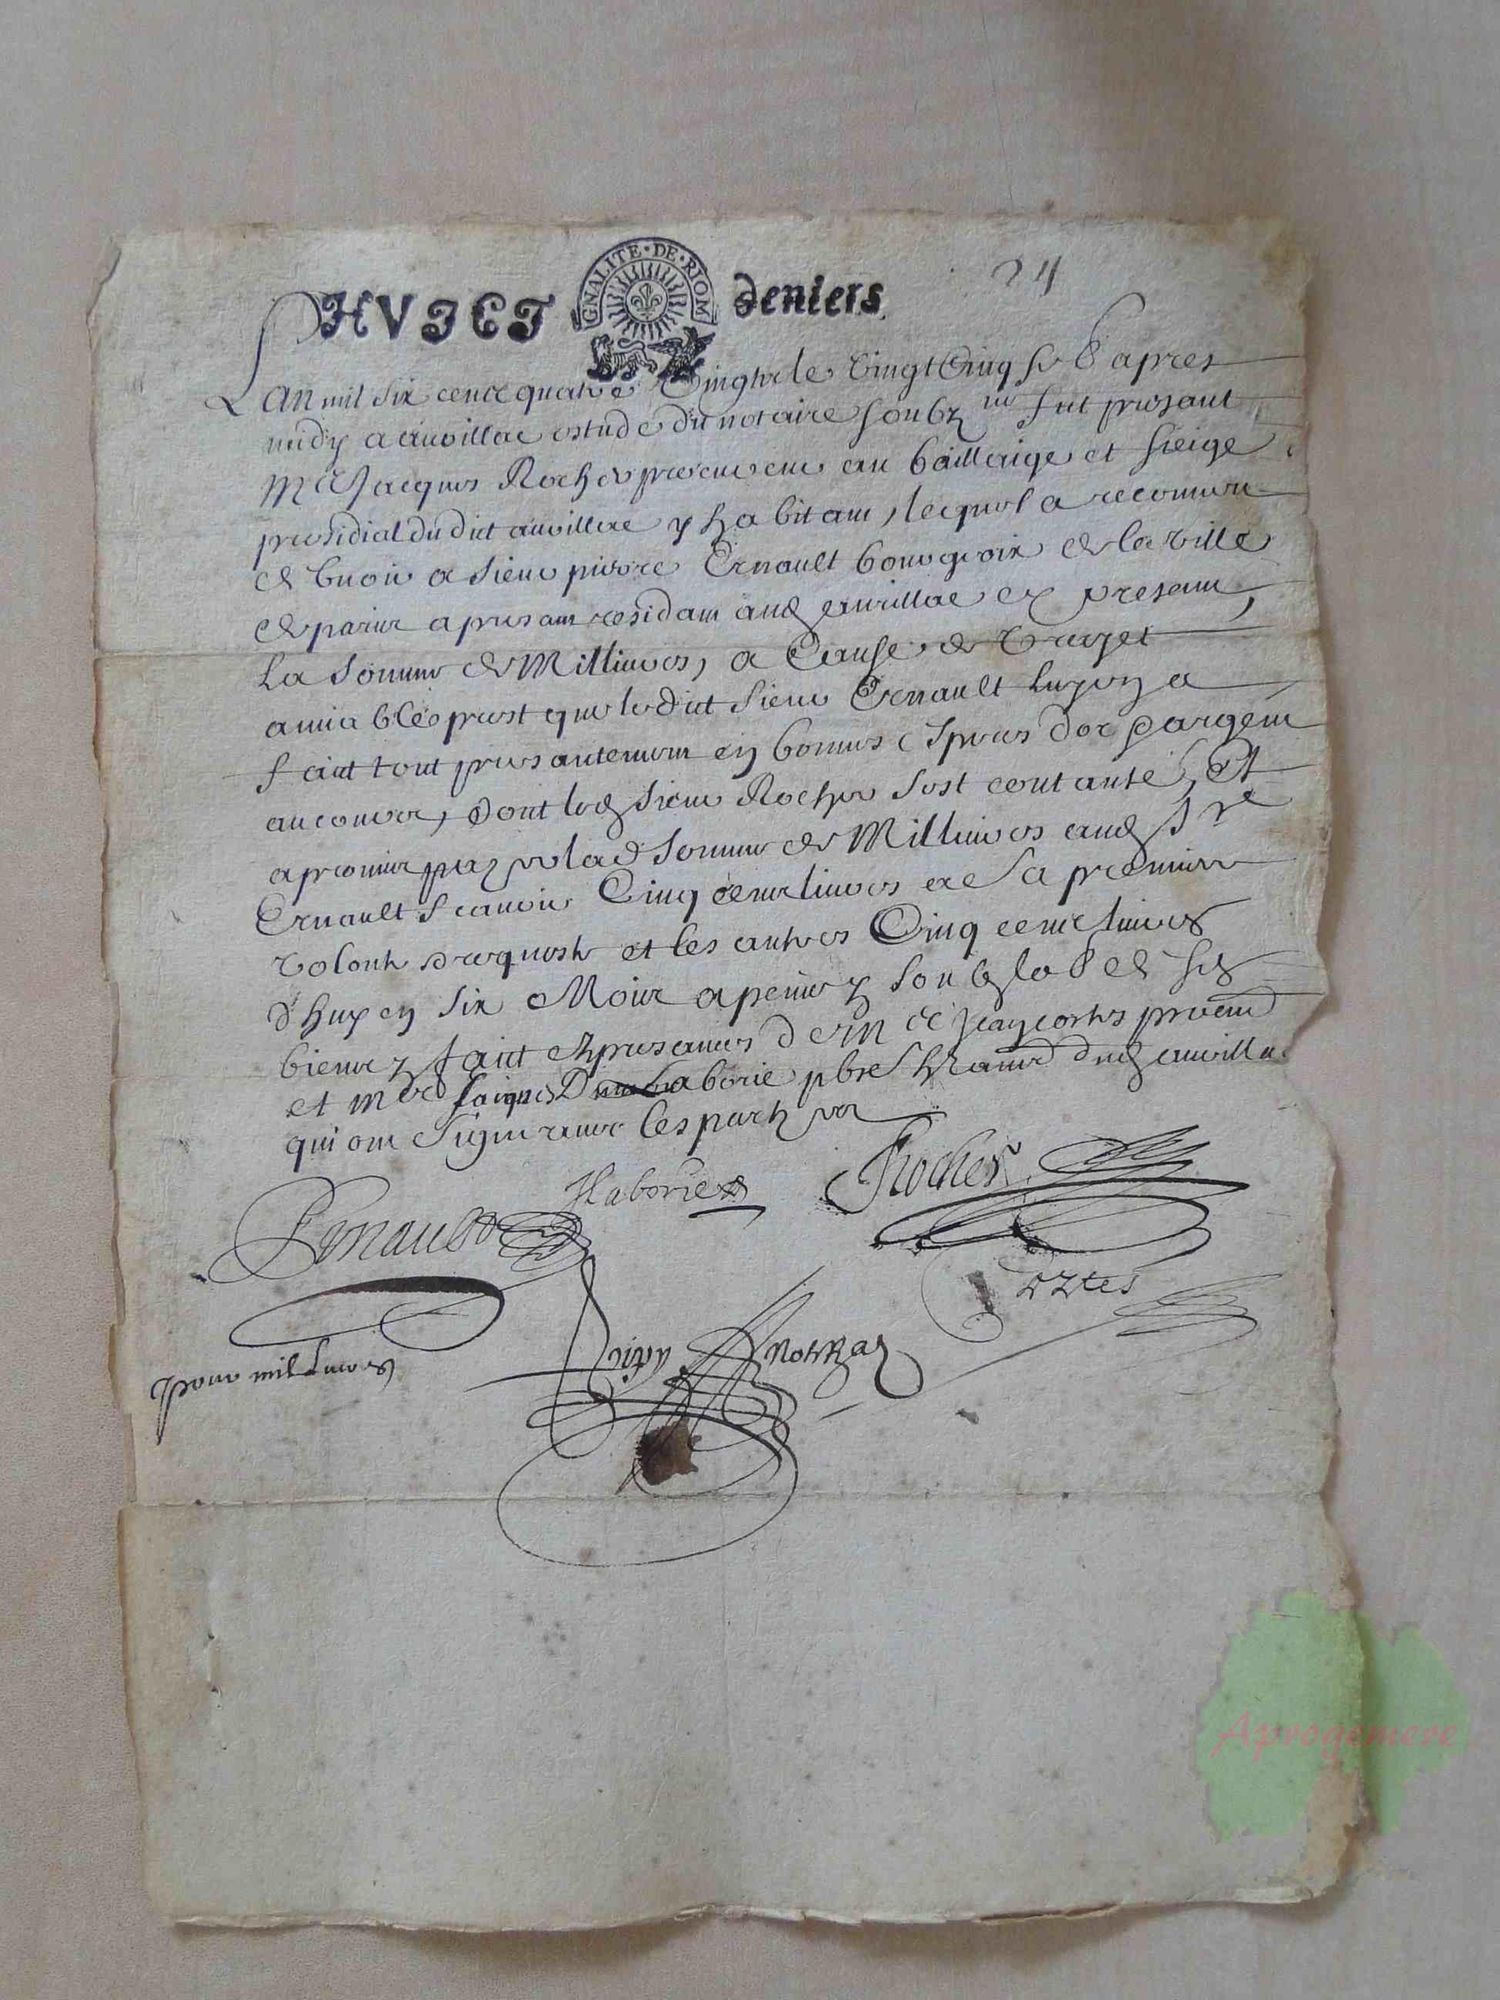 24
HVICT deniers
GNALITE · DE · RIOM
L'an mil six centz quatre vingtz le vingt cinq apres
midy a auvillac estude du notaire soubz fut presant
Me Jacques Rocher procureur au bailliaige et sieige
presidial dudict auvillac y habitant, lequel a recogneu
et debvoir a sieur pierre Ernault bourgeoix de la ville
de paris a presant residant aud aurillac et presant,
la somme de Mil livres, a cause de vray et
amiable prest que ledict sieur Ernault luy en a
faict tout presantement en bonnes especes d'or d'argent
au cours, dont led sieur Rocher s'est contanté, Et
a promis payer lad somme de Mil livres aud Sr
Ernault scavoir Cinq cents livres a sa premiere
volonte requeste et les autres Cinq cents livres
d'huy en six Mois a peine soubz lob de ses
biens faict et presances de Me Jean cortes procur
et Me Laborie pbre dud auvillac
qui ont signe avec les parties
Ernault
Laborie
Rocher
Cortes
notr Ral
pour mil livres
Aprogemere